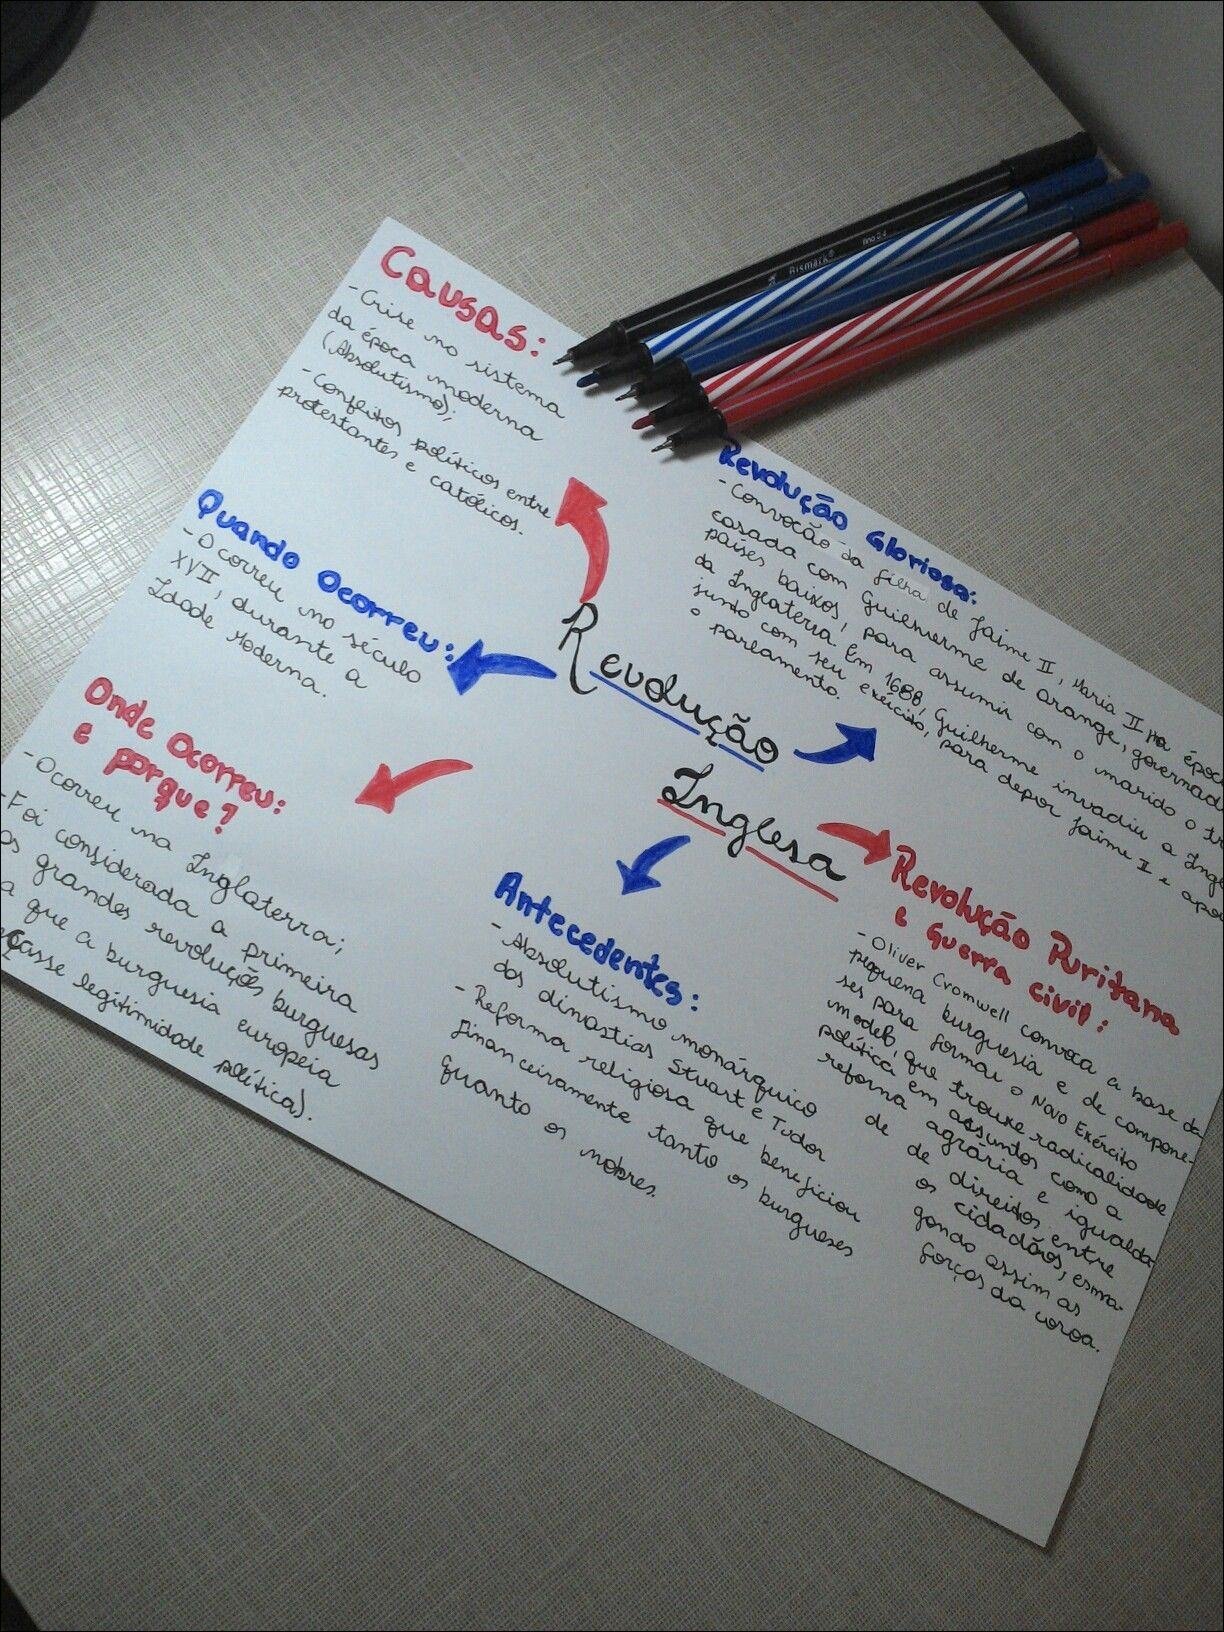 Causas:
- Crise no sistema
da época moderna
(Absolutismo);
- Conflitos políticos entre
protestantes e católicos.
Quando Ocorreu:
- Ocorreu no século
XVII, durante a
Idade Moderna.
Onde Ocorreu:
e porque?
- Ocorreu na Inglaterra;
- Foi considerada a primeira
grandes revoluções burguesas
a que a burguesia europeia
legitimidade política).
Revolução
Inglesa
Antecedentes:
- Absolutismo monárquico
das dinastias Stuart e Tudor
- Reforma religiosa que beneficiou
financeiramente tanto os burgueses
quanto os nobres.
Revolução Gloriosa:
- Convocão da filha de Jaime II, Maria II na
casada com Guilherme de Orange,
países baixos, para assumir com o marido o
da Inglaterra. Em 1688, Guilherme invadiu a
junto com seu exército, para depor Jaime II e
o parlamento.
Revolução Puritana
e Guerra civil:
- Oliver Cromwell convoca a base da
pequena burguesia e de compone-
ses para formar o Novo Exército
modelo, que trouxe radicalidade
política em assuntos como a
reforma agrária e igualda-
de de direitos entre
os cidadãos, esma-
gando assim as
forças da coroa.
Bismark
fino 0.4